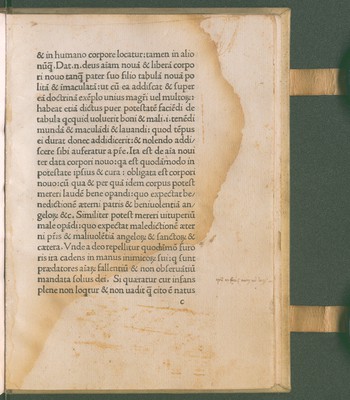 & in humano corpore locatur: tamen in alio
nūq̄. Dat .n. deus aīam nouā & liberā corpo
ri nouo tanq̄ pater suo filio tabulā nouā po
litā & īmaculatā: ut cū ea addiscat & super
eā doctrinā exēplo unius magr̄i uel multoꝝ:
habeat etiā dictus puer potestatē faciēdi de
tabula qcquid uoluerit boni & mali .i. tenēdi
mundā & maculādi & lauandi: quod tēpus
ei durat donec addidicerit: & nolendo addi/
scere sibi auferatur a pr̄e. Ita est de aīa noui
ter data corpori nouo: qa est quodāmodo in
potestate ipsius & cura: obligata est corpori
nouo: cū qua & per quā idem corpus potest
mereri laudē bene opandi: quo expectat be
nedictionē æterni patris & beniuolentiā an/
geloꝝ &c. Similiter potest mereri uituperiū
male opādi: quo expectat maledictionē æter
ni pr̄is & maliuolētiā angeloꝝ & sanctoꝝ &
cætera. Vnde a deo repellitur quodāmō furo
ris ira cadens in manus inimicoꝝ sui: q sunt
prædatores aīaꝝ fallentiū & non obseruātiū
mandata solius dei. Si quæratur cur infans
plene non loqtur & non uadit q̄ cito ē natus
c